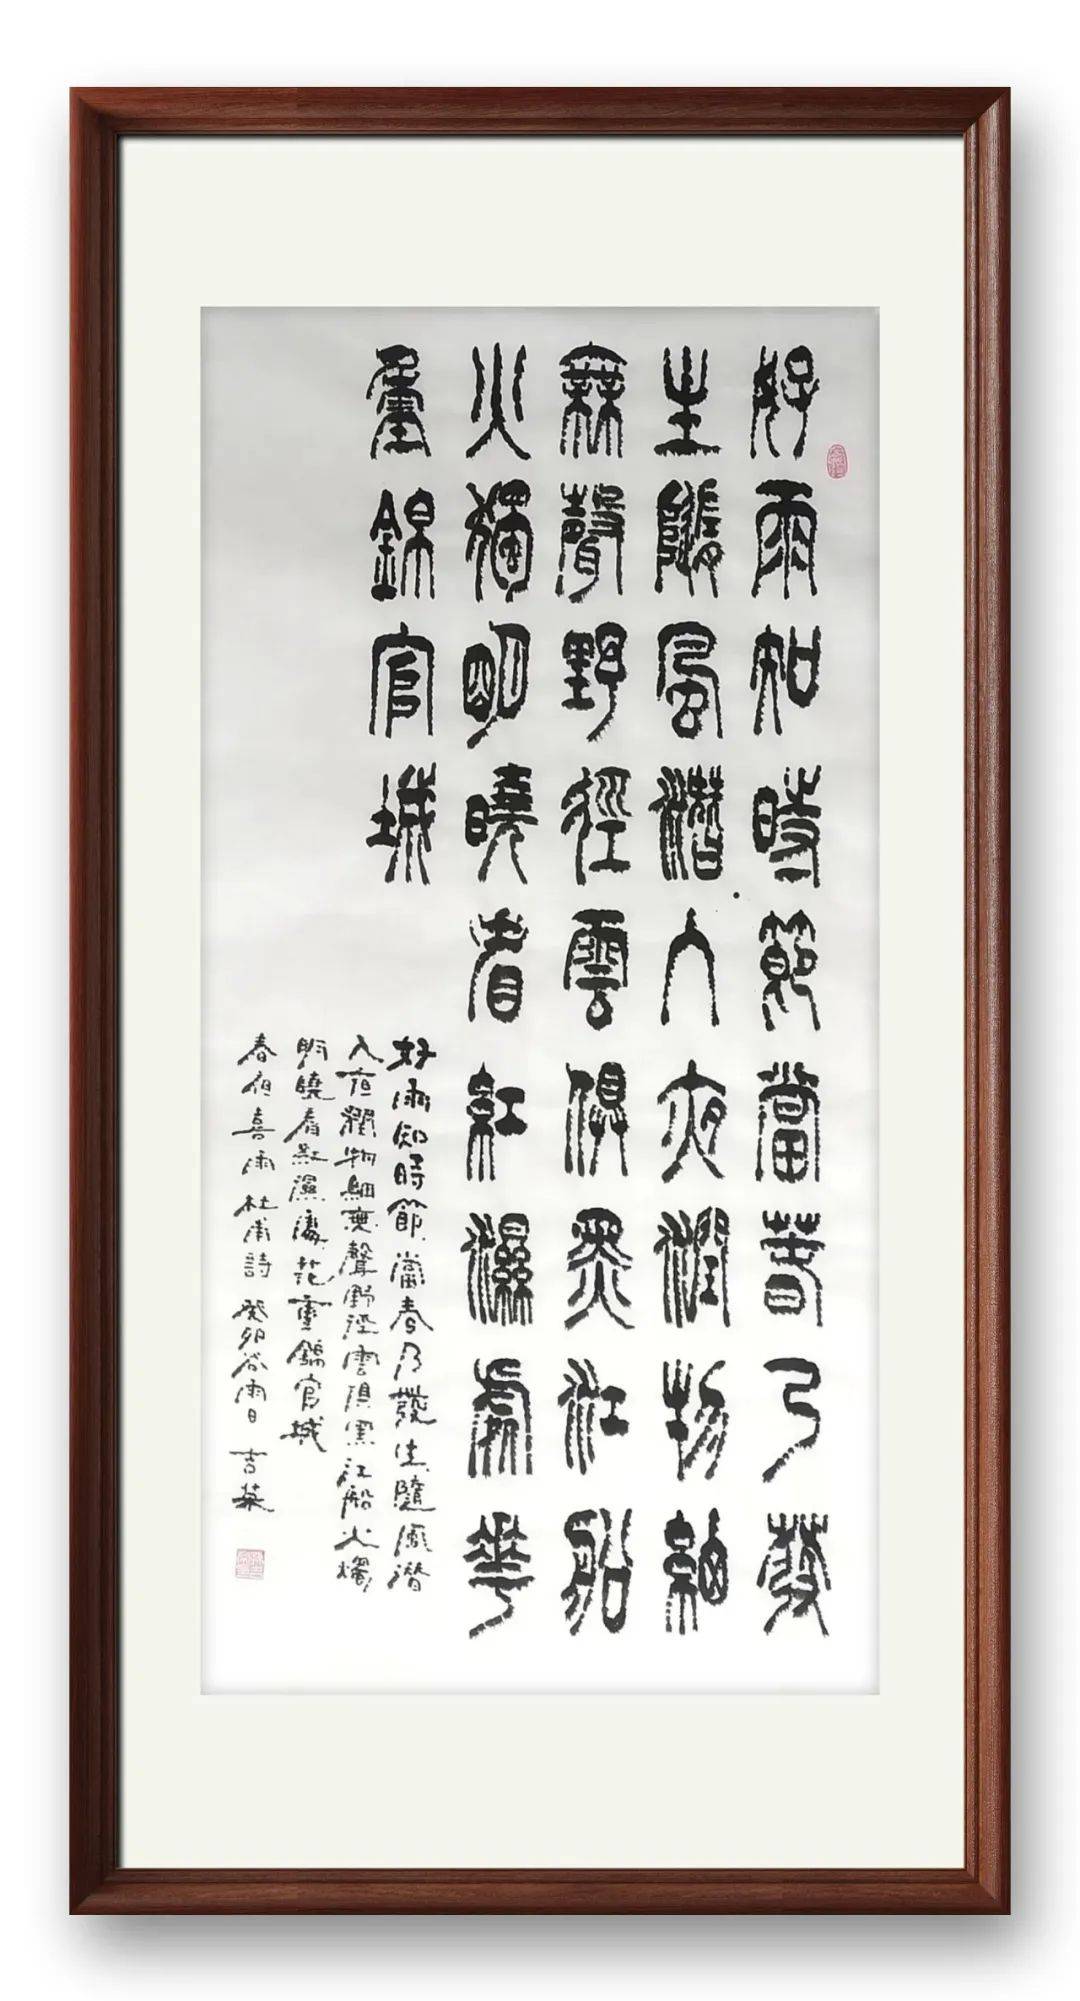 好雨知時節當春乃發
生隨風潛入夜潤物細
無聲野徑雲俱黑江船
火獨明曉看紅濕處華
重錦官城
好雨知時節當春乃發生隨風潛
入夜潤物細無聲野徑雲俱黑江船火獨
明曉看紅濕處花重錦官城
春夜喜雨杜甫詩 癸卯谷雨日 吉